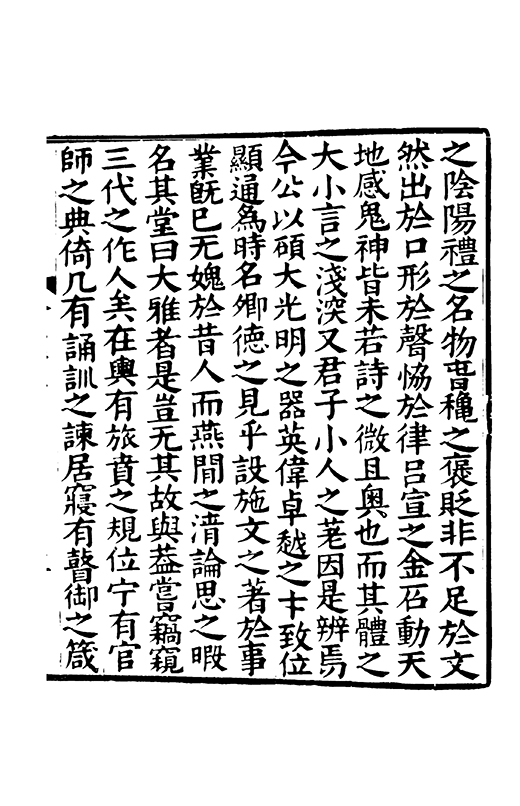 之陰陽禮之名物晋穐之褒貶非不足於文
然出於口形於聲恊於律呂宣之金石動天
地感鬼神皆未若詩之微且奧也而其體之
大小言之淺深又君子小人之茖因是辨焉
今公以碩大光明之器英偉卓越之才致位
顯通為時名卿德之見乎設施文之著於事
業旣已无媿於昔人而燕閒之清論思之暇
名其堂曰大雅者是豈无其故與葢嘗竊窺
三代之作人矣在輿有旅賁之規位宁有官
師之典倚几有誦訓之諫居寢有瞽御之箴